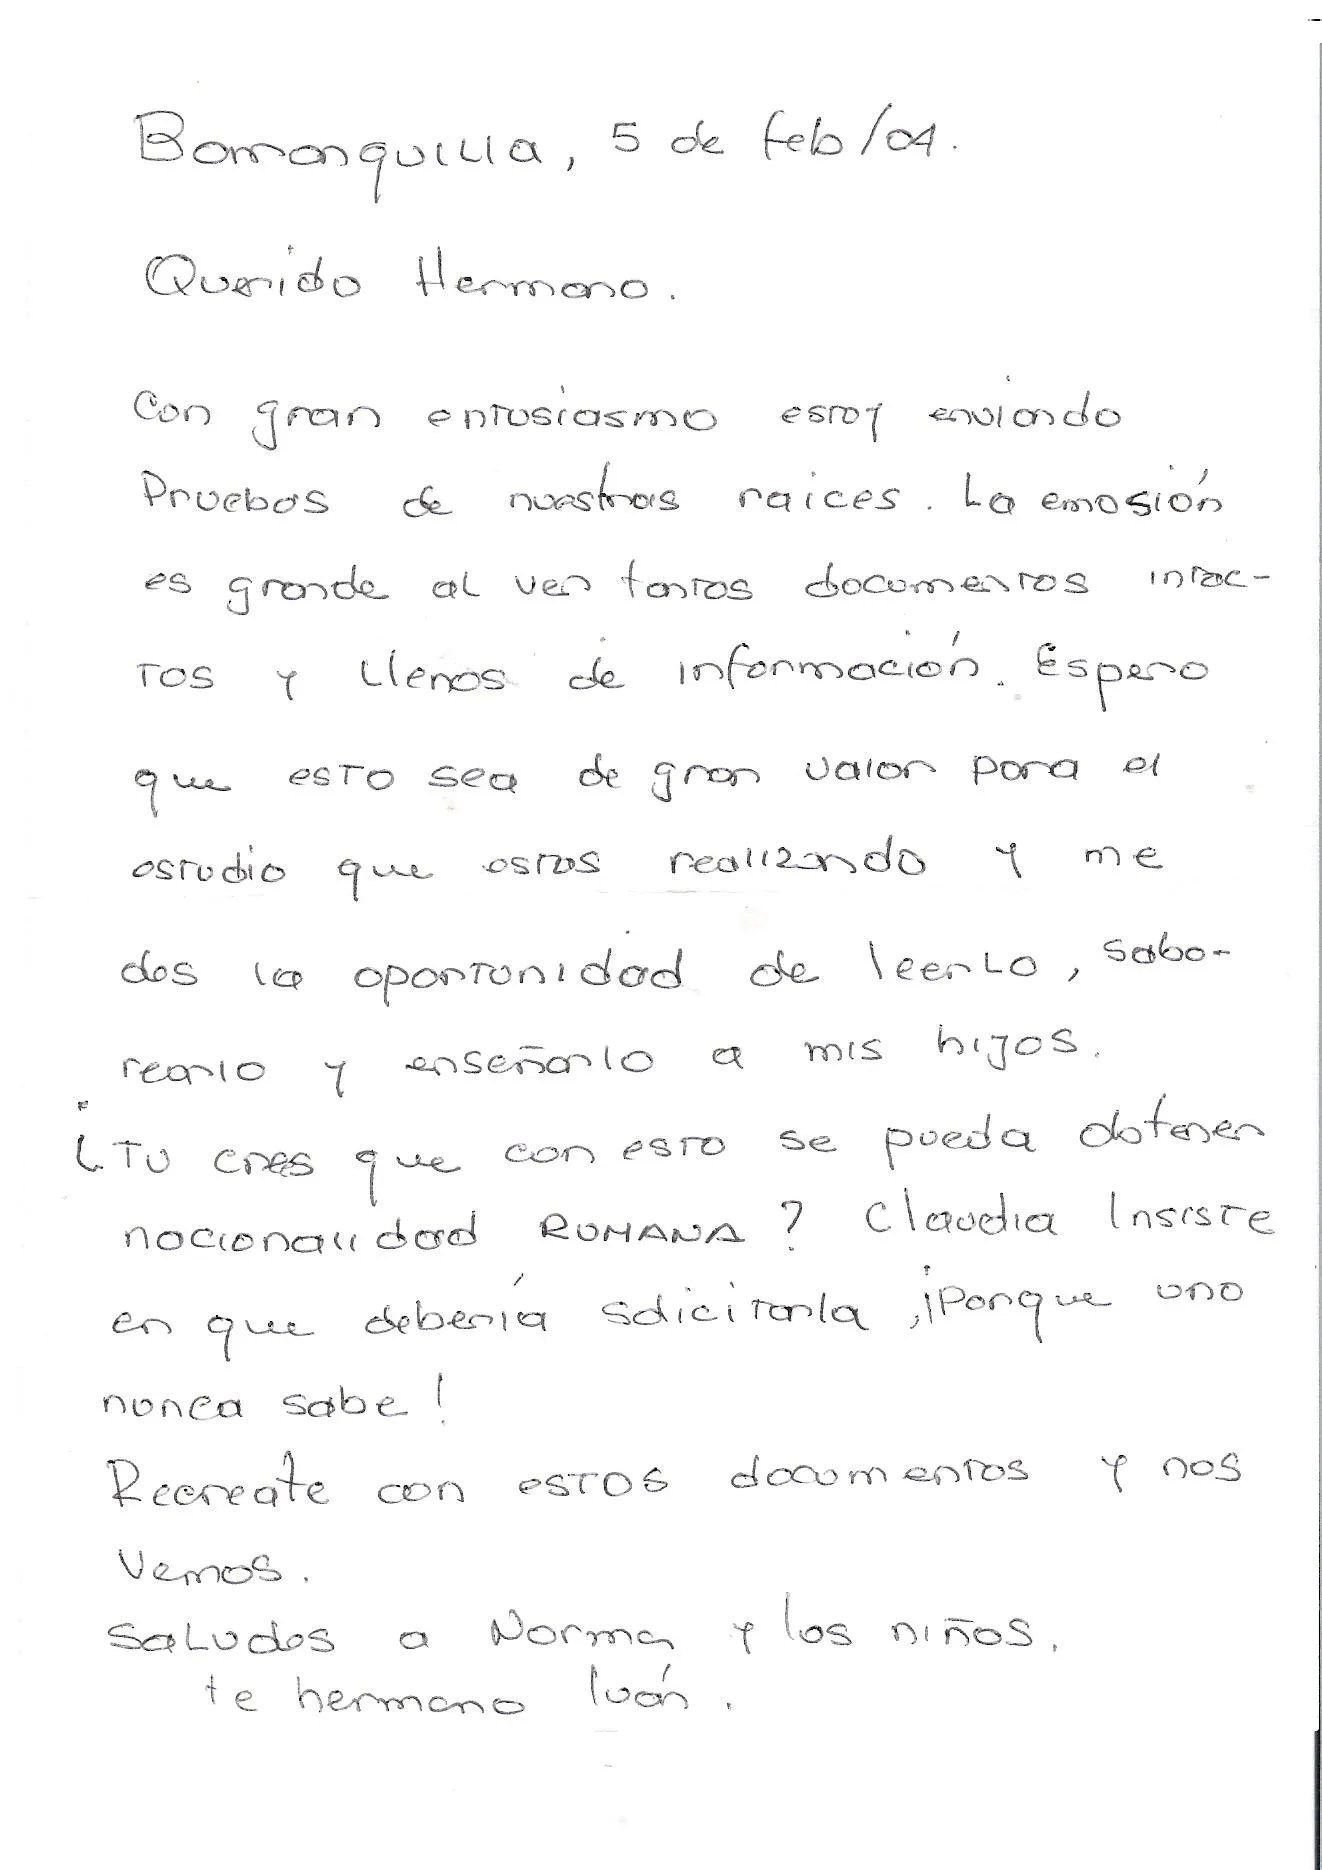 Barranquilla, 5 de feb/04.
Querido Hermano.
Con gran entusiasmo estoy enviando
Pruebas de nuestras raices. La emosión
es grande al ver tantos documentos intac-
tos y llenos de información. Espero
que esto sea de gran valor para el
estudio que estas realizando y me
des la oportunidad de leerlo, sabo-
rearlo y enseñarlo a mis hijos.
¿Tu cres que con esto se pueda obtener
nacionalidad RUMANA? Claudia Insiste
en que debería solicitarla, ¡Porque uno
nunca sabe!
Recreate con estos documentos y nos
Vemos.
Saludos a Norma y los niños.
te hermano Iván.